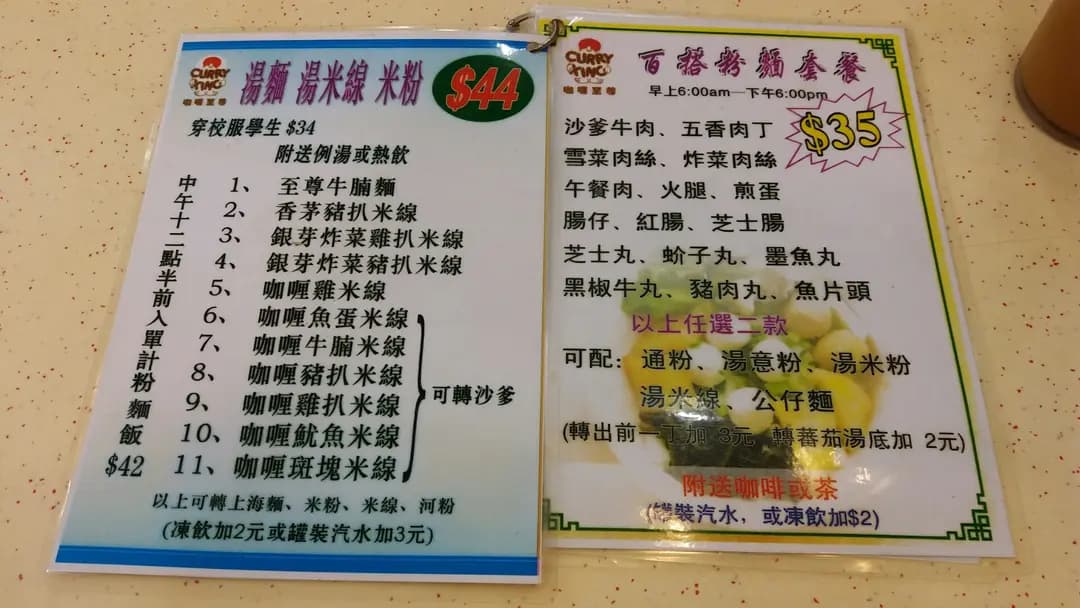 CURRY
KING
咖喱至尊
湯麵 湯米線 米粉
$44
穿校服學生 $34
附送例湯或熱飲
中午十二點半前入單計粉麵飯
$42
1、 至尊牛腩麵
2、 香茅豬扒米線
3、 銀芽炸菜雞扒米線
4、 銀芽炸菜豬扒米線
5、 咖喱雞米線
6、 咖喱魚蛋米線
7、 咖喱牛腩米線
8、 咖喱豬扒米線
9、 咖喱雞扒米線
10、 咖喱魷魚米線
11、 咖喱斑塊米線
可轉沙爹
以上可轉上海麵、米粉、米線、河粉
(凍飲加2元或罐裝汽水加3元)
CURRY
KING
咖喱至尊
百搭粉麵套餐
早上6:00am—下午6:00pm
$35
沙爹牛肉、五香肉丁
雪菜肉絲、炸菜肉絲
午餐肉、火腿、煎蛋
腸仔、紅腸、芝士腸
芝士丸、蚧子丸、墨魚丸
黑椒牛丸、豬肉丸、魚片頭
以上任選二款
可配：通粉、湯意粉、湯米粉
湯米線、公仔麵
(轉出前一丁加 3元 轉蕃茄湯底加 2元)
附送咖啡或茶
(罐裝汽水，或凍飲加$2)